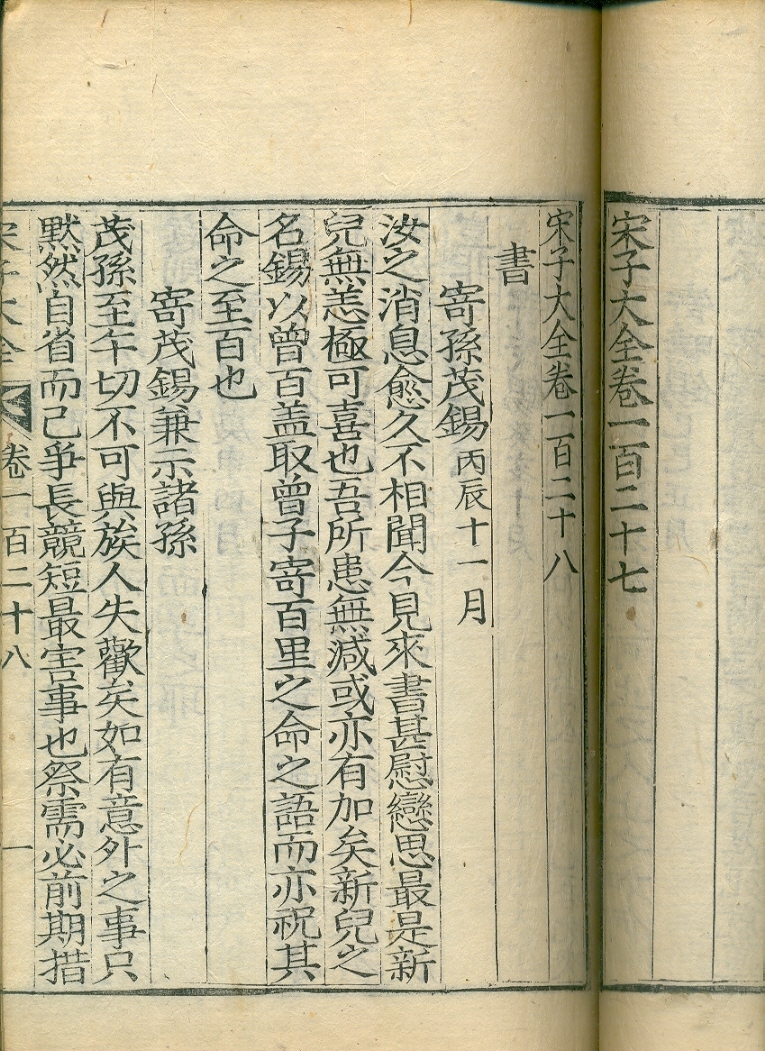 宋子大全卷一百二十七
宋子大全卷一百二十八
書
寄孫茂錫丙辰十一月
汝之消息愈久不相聞今見來書甚慰戀思最是新
兒無恙極可喜也吾所患無減或亦有加矣新兒之
名錫以曾百盖取曾子寄百里之命之語而亦祝其
命之至百也
寄茂錫兼示諸孫
茂孫至午切不可與族人失歡矣如有意外之事只
默然自省而已爭長競短最害事也祭需必前期措
宋子大全 卷一百二十八 一